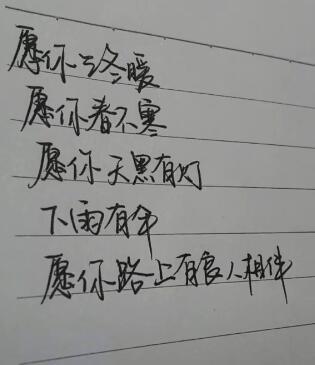 愿你三冬暖
愿你春不寒
愿你天黑有灯
下雨有伞
愿你路上有良人相伴